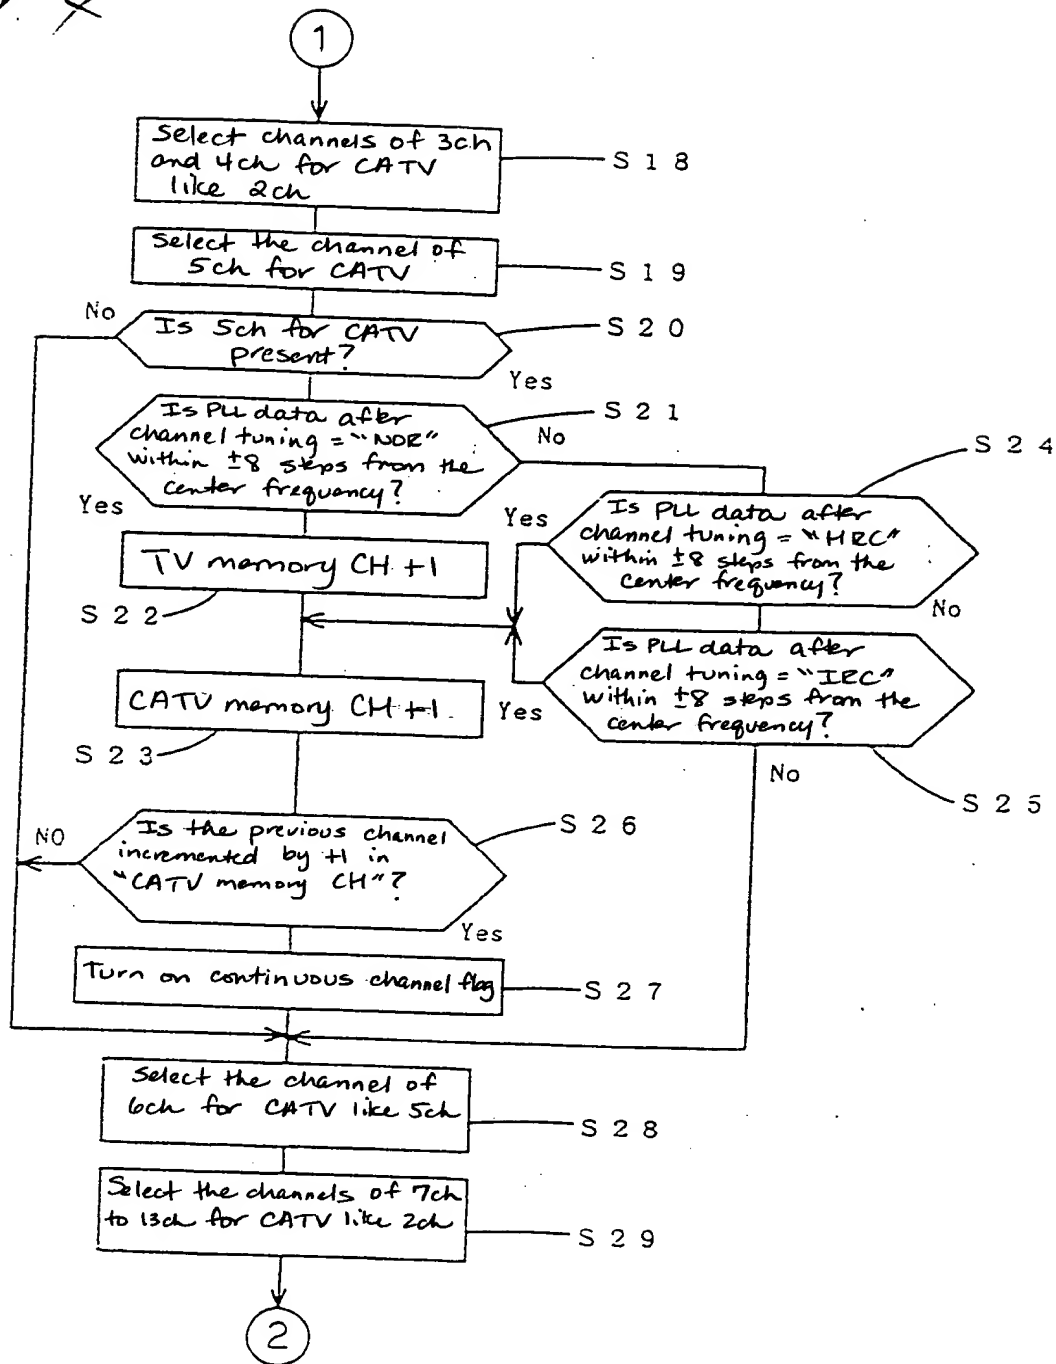 1
Select channels of 3ch
and 4ch for CATV
like 2ch
S 1 8
Select the channel of
5ch for CATV
S 1 9
No
Is 5ch for CATV
present?
S 2 0
Yes
Is PLL data after
channel tuning = "NOR"
within ±8 steps from the
center frequency?
S 2 1
No
Yes
S 2 4
Is PLL data after
channel tuning = "HRC"
within ±8 steps from the
center frequency?
Yes
No
TV memory CH +1
S 2 2
Is PLL data after
channel tuning = "IRC"
within ±8 steps from the
center frequency?
Yes
No
S 2 5
CATV memory CH +1.
S 2 3
Is the previous channel
incremented by +1 in
"CATV memory CH"?
S 2 6
NO
Yes
Turn on continuous channel flag
S 2 7
Select the channel of
6ch for CATV like 5ch
S 2 8
Select the channels of 7ch
to 13ch for CATV like 2ch
S 2 9
2